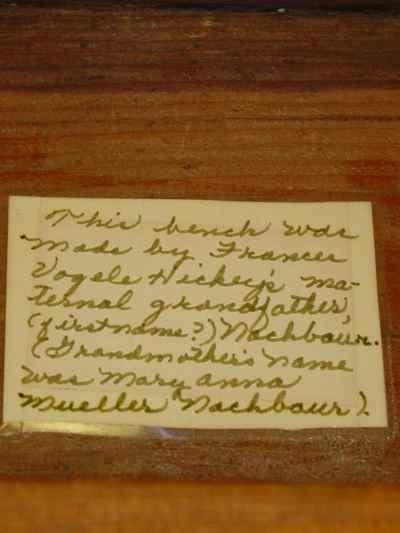 This bench was
made by Frances
Vogele Hickey's ma-
ternal grandfather,
(first name?) Nachbaur.
(Grandmother's name
was Mary Anna
Mueller Nachbaur).